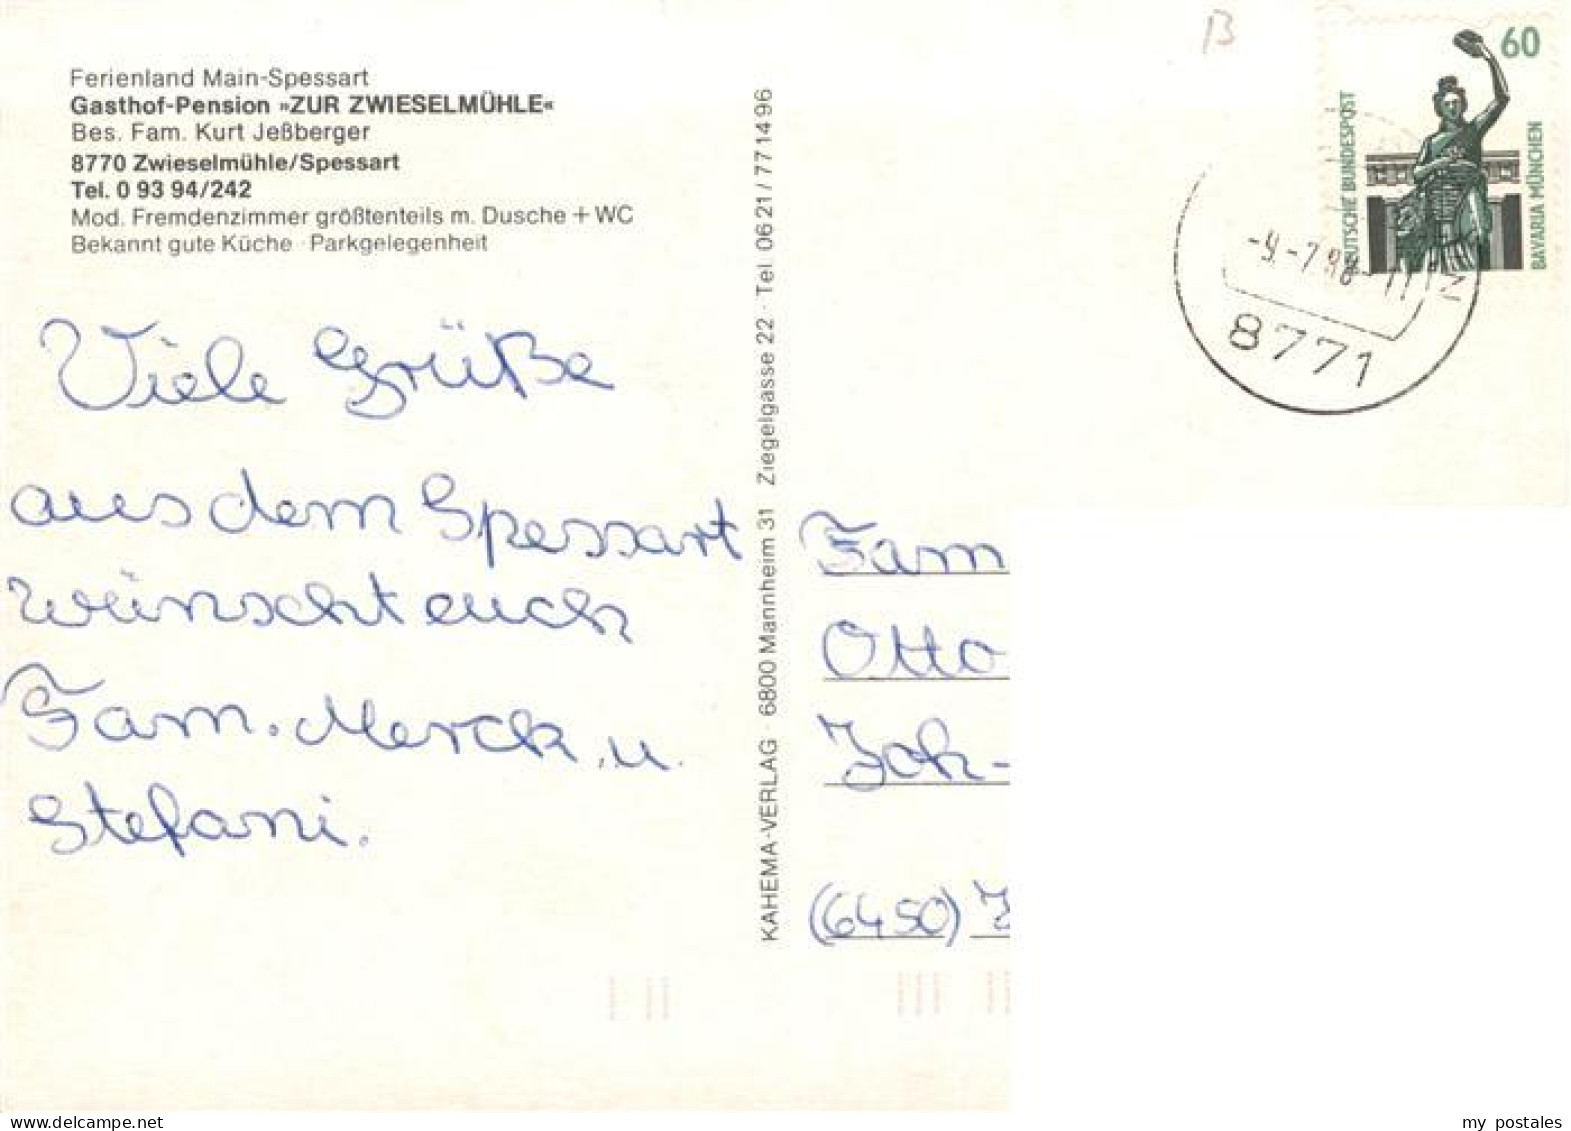 Ferienland Main-Spessart
Gasthof-Pension »ZUR ZWIESELMÜHLE«
Bes. Fam. Kurt Jeßberger
8770 Zwieselmühle/Spessart
Tel. 0 93 94/242
Mod. Fremdenzimmer größtenteils m. Dusche + WC
Bekannt gute Küche · Parkgelegenheit
Viele Grüße
aus dem Spessart
wünscht euch
Fam. Merck u.
Stefani.
KAHEMA-VERLAG · 6800 Mannheim 31 Ziegelgasse 22 · Tel. 06 21 / 77 14 96
B
60
DEUTSCHE BUNDESPOST
BAVARIA MÜNCHEN
8771
Fam
Otto
Joh-
(6450)
115268163
my postales